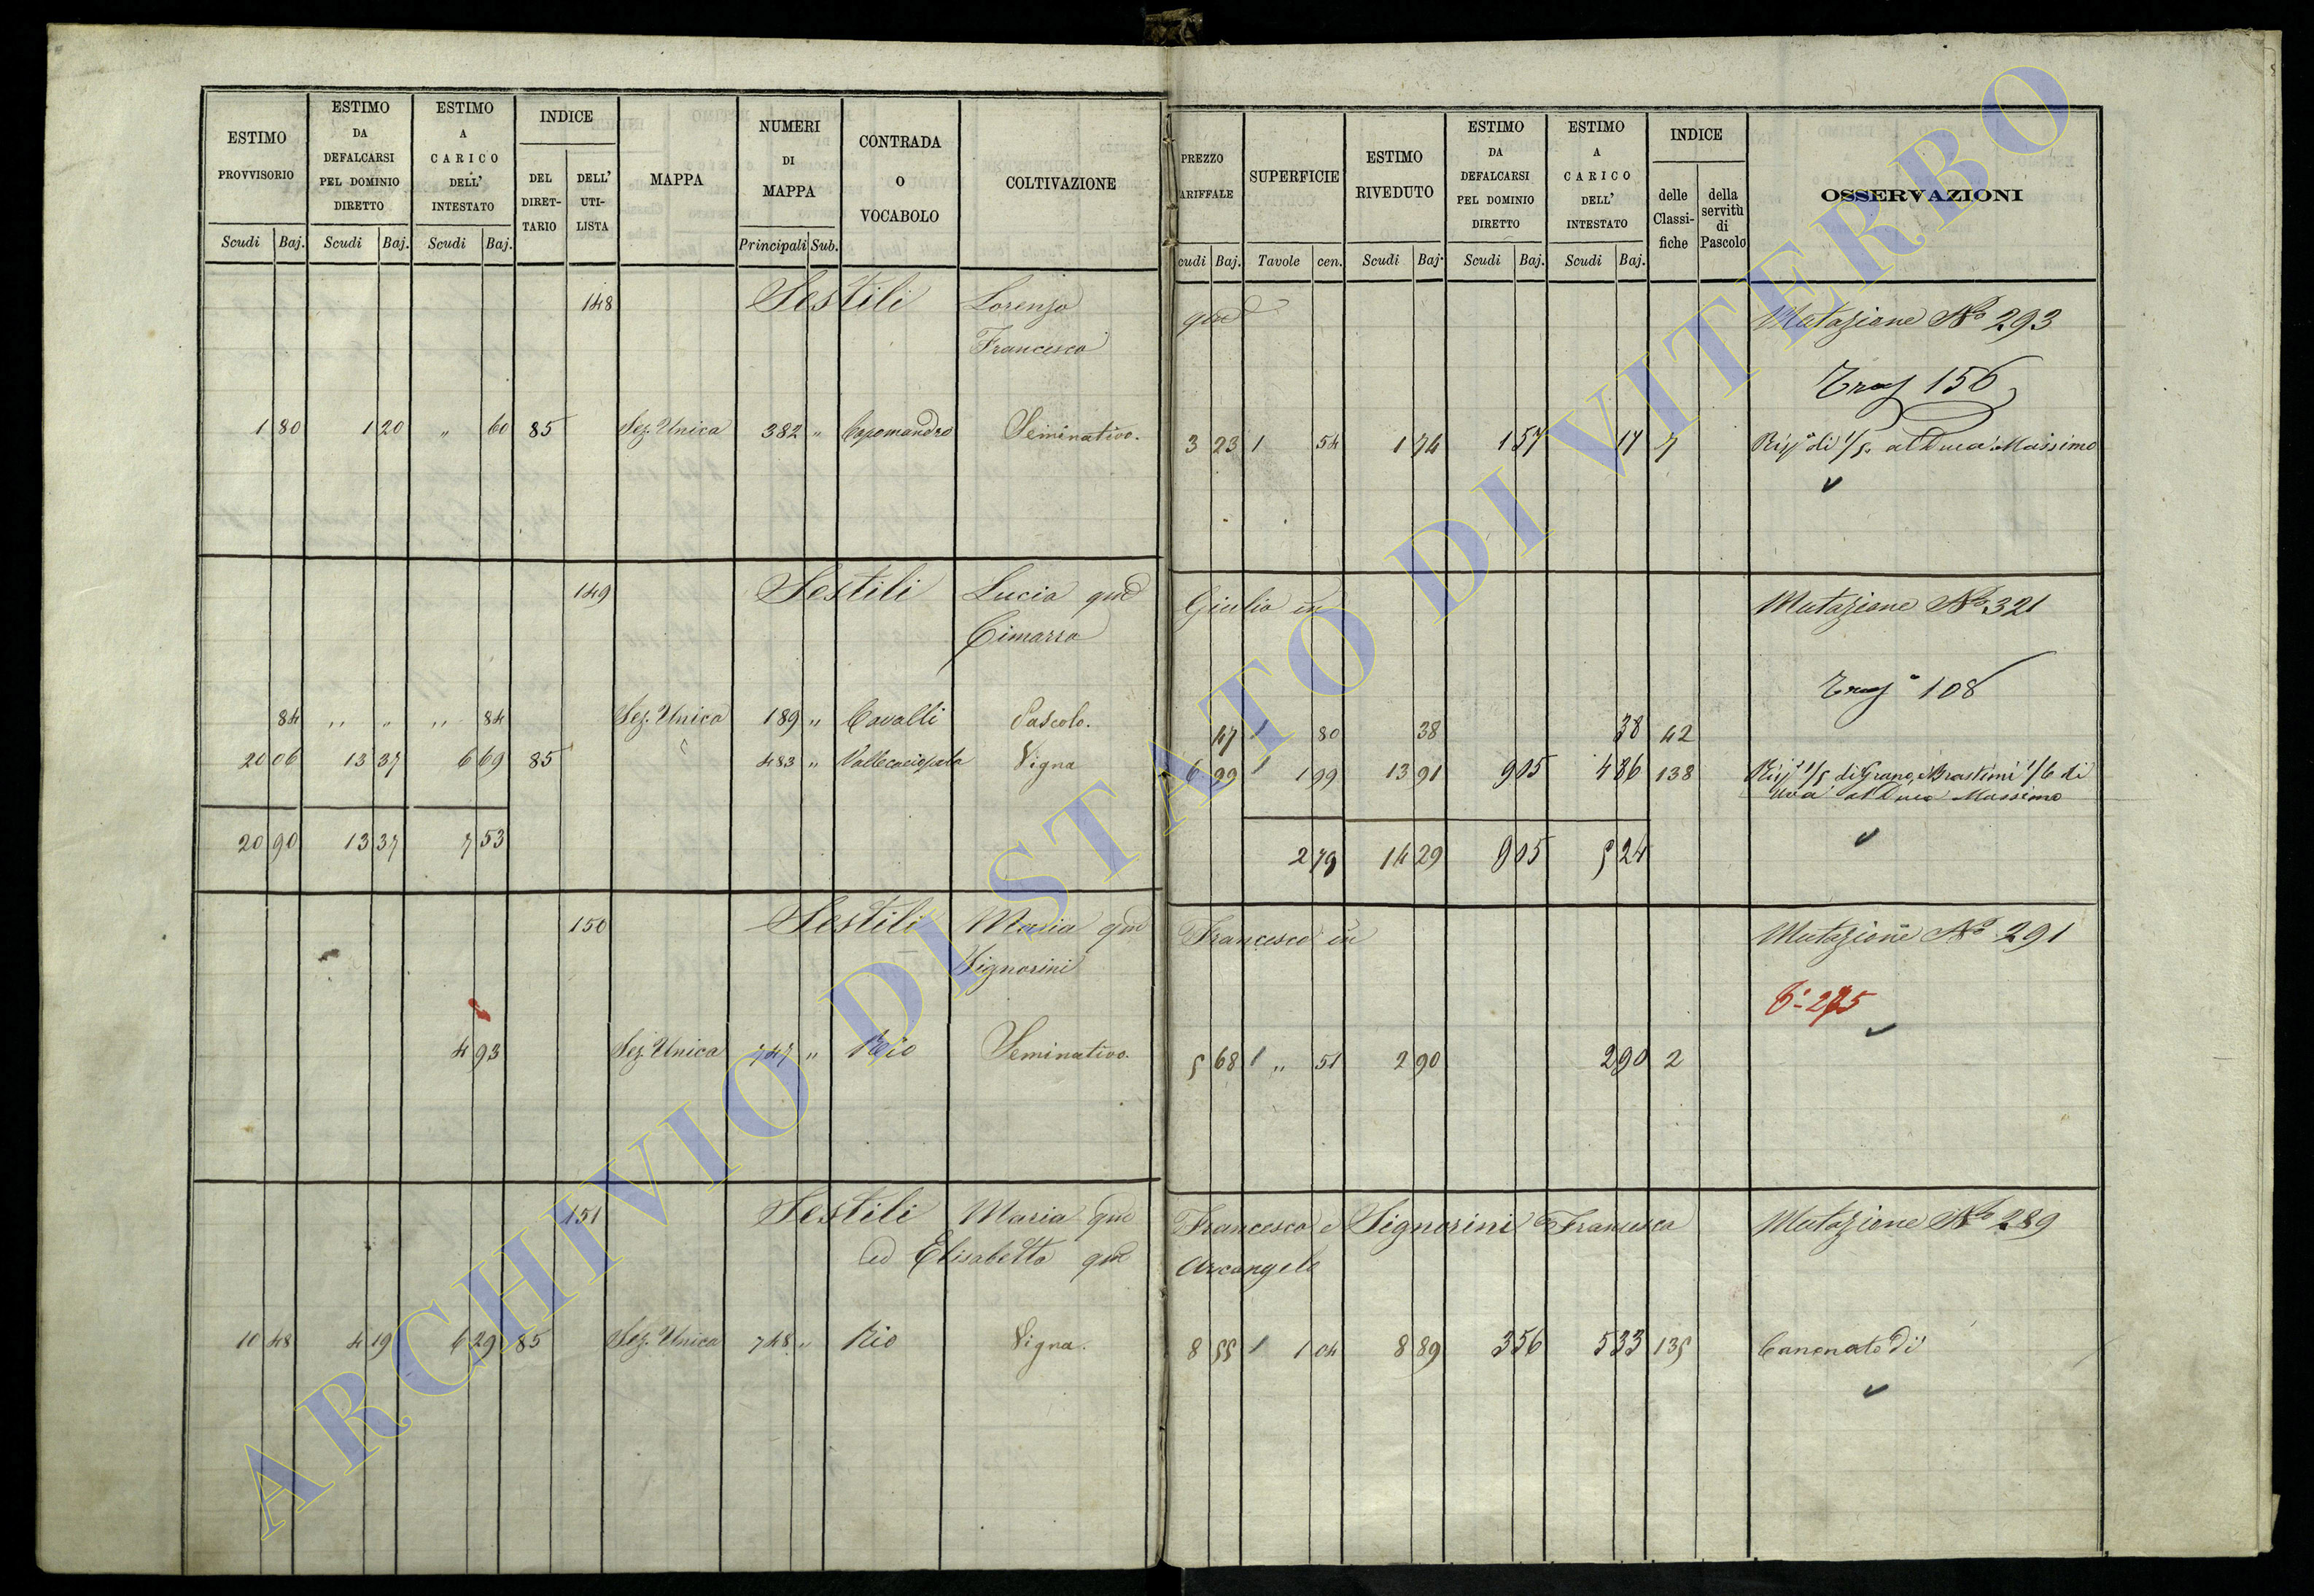 ESTIMO PROVVISORIO
ESTIMO DA DEFALCARSI PEL DOMINIO DIRETTO
ESTIMO A CARICO DELL' INTESTATO
INDICE
DEL DIRET-TARIO
DELL' UTI-LISTA
MAPPA
NUMERI DI MAPPA
CONTRADA O VOCABOLO
COLTIVAZIONE
Scudi Baj. Scudi Baj. Scudi Baj. Principali Sub.
PREZZO ARIFFALE
SUPERFICIE
ESTIMO RIVEDUTO
ESTIMO DA DEFALCARSI PEL DOMINIO DIRETTO
ESTIMO A CARICO DELL' INTESTATO
INDICE
delle Classi-fiche
della servitù di Pascolo
OSSERVAZIONI
cudi Baj. Tavole cen. Scudi Baj. Scudi Baj. Scudi Baj.
148 Sestili Lorenzo qud Mutazione No 293
Francesco
156
1 80 1 20 " 60 85 Sez. Unica 382 " Capomandro Seminativo. 3 23 1 54 1 74 1 57 17 7 di 1/5 al Duca Massimo
149 Sestili Lucia qud Giulio in Mutazione No 321
Cimarra
108
84 " " " 84 Sez. Unica 189 " Cavalli Pascolo. 47 1 80 38 38 42
20 06 13 37 6 69 85 " 483 " Vigna 6 99 1 1 99 13 91 9 05 4 86 138 1/5 di Grano, 1/6 di
Uva al Duca Massimo
20 90 13 37 7 53 2 79 14 29 9 05 5 24
150 Sestili Maria qud Francesco in Mutazione No 291
Signorini
275
4 93 Sez. Unica 747 " Rio Seminativo. 5 68 1 " 51 2 90 2 90 2
151 Sestili Maria qud Francesco e Signorini Francesca Mutazione No 289
ed Elisabetta qud Arcangelo
10 48 4 19 6 29 85 Sez. Unica 748 " Rio Vigna. 8 55 1 1 04 8 89 3 56 5 33 135 Canonato Di
ARCHIVIO DI STATO DI VITERBO